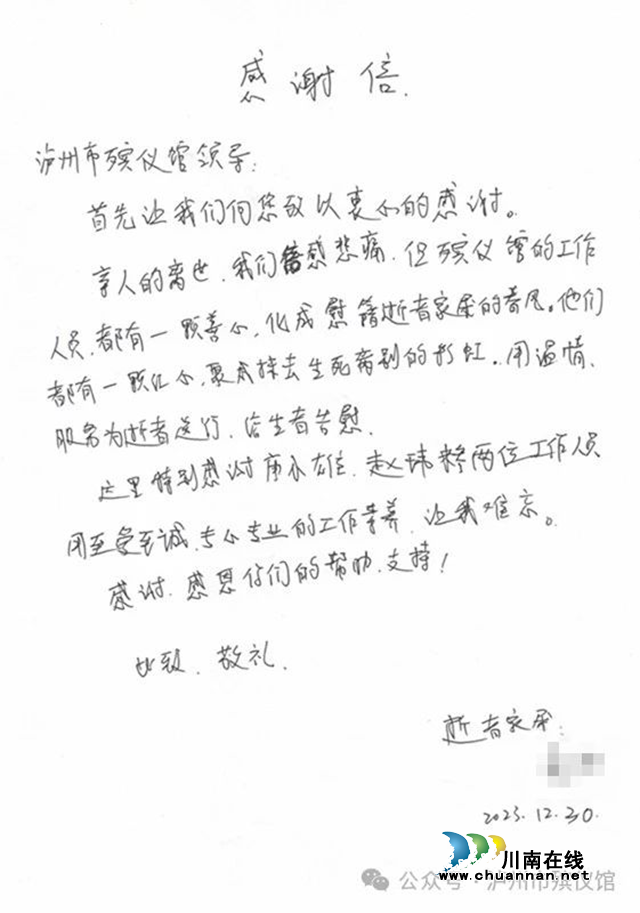 感谢信
泸州市殡仪馆领导:
首先让我们向您致以衷心的感谢。
亲人的离世,我们倍感悲痛,但殡仪馆的工作
人员,都有一颗善心,化成慰籍逝者家属的春风。他们
都有一颗红心,聚成抹去生死离别的彩虹。用温情、
服务为逝者送行,给生者告慰。
这里特别感谢唐永雄、赵玮桥两位工作人员
用至爱至诚,专心专业的工作素养,让我难忘。
感谢、感恩你们的帮助、支持!
此致、敬礼
逝者家属:
2023.12.30.
川南在线
www.chuannan.net
公众号·泸州市殡仪馆